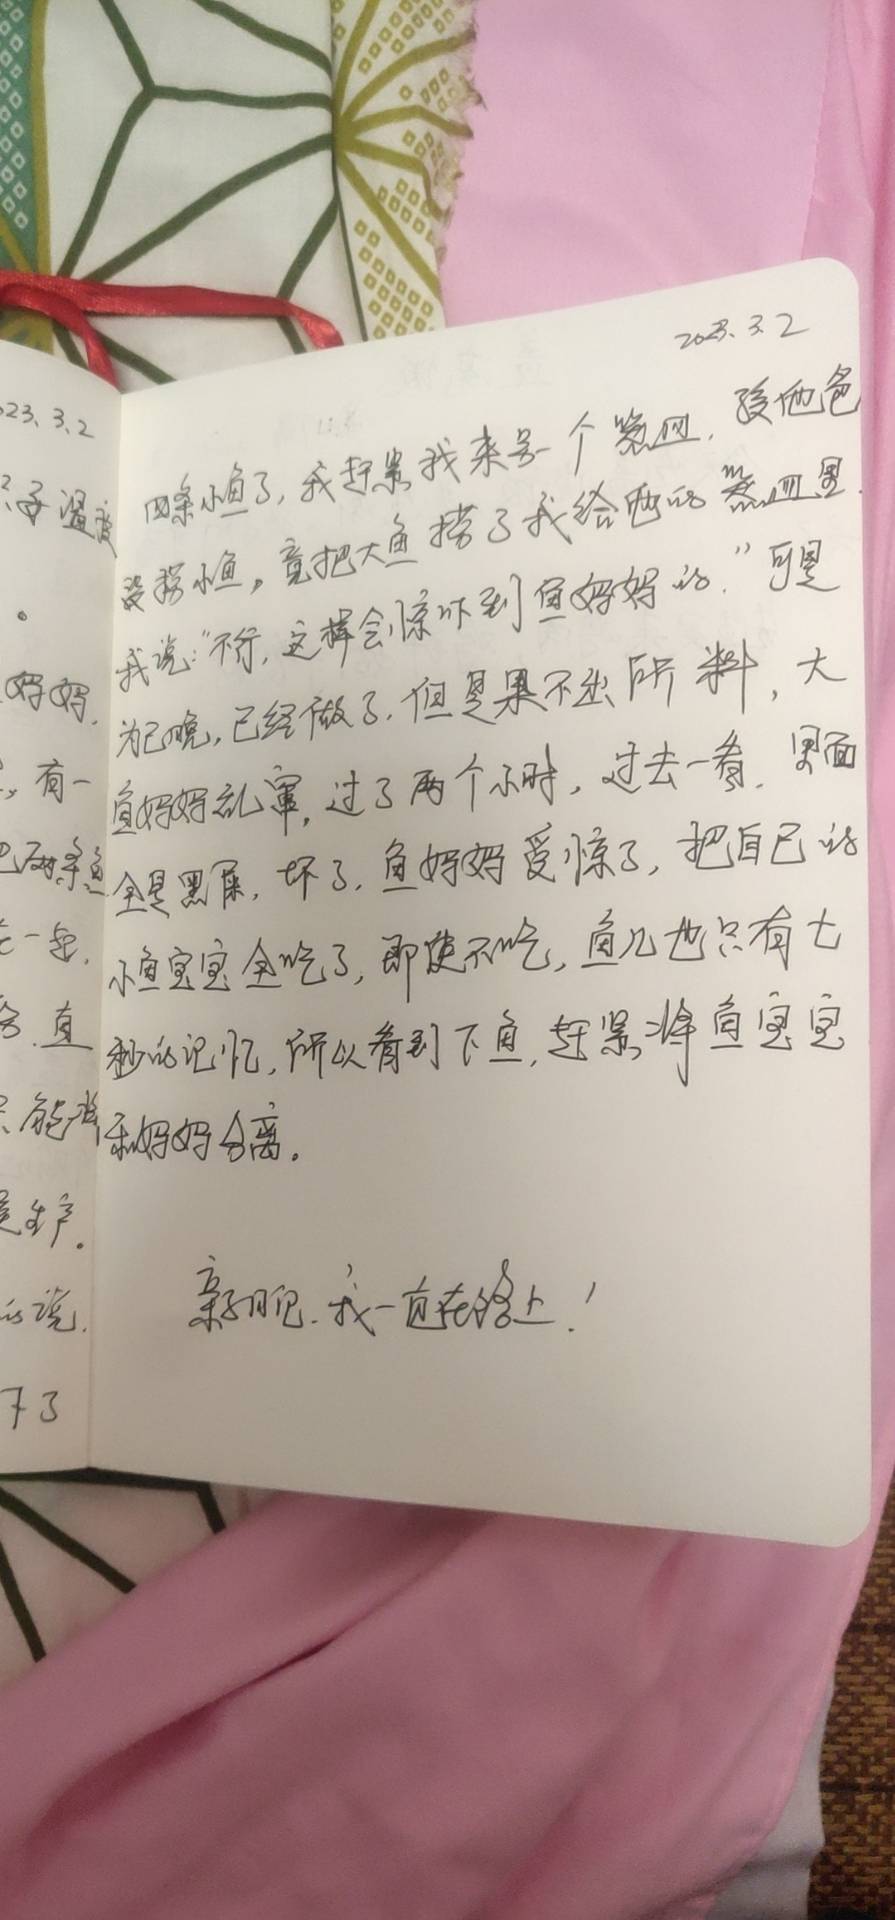 2023.3.2
四条小鱼了,我赶紧找来另一个器皿.
没捞小鱼,竟把大鱼捞了我给他的器皿里.
我说:“不行,这样会惊吓到鱼妈妈的.”可是
为已晚,已经做了.但是果不出所料,大
鱼妈妈乱窜,过了两个小时,过去一看.里面
全是黑屎,坏了,鱼妈妈受惊了,把自己的
小鱼宝宝全吃了,即使不吃,鱼儿也只有七
秒的记忆,所以看到下鱼,赶紧将鱼宝宝
和妈妈分离。
我一直在路上!
23.3.2
温度
。
妈妈,
,有一
把两条鱼
在一起,
直
能当
生产。
的说,
下了